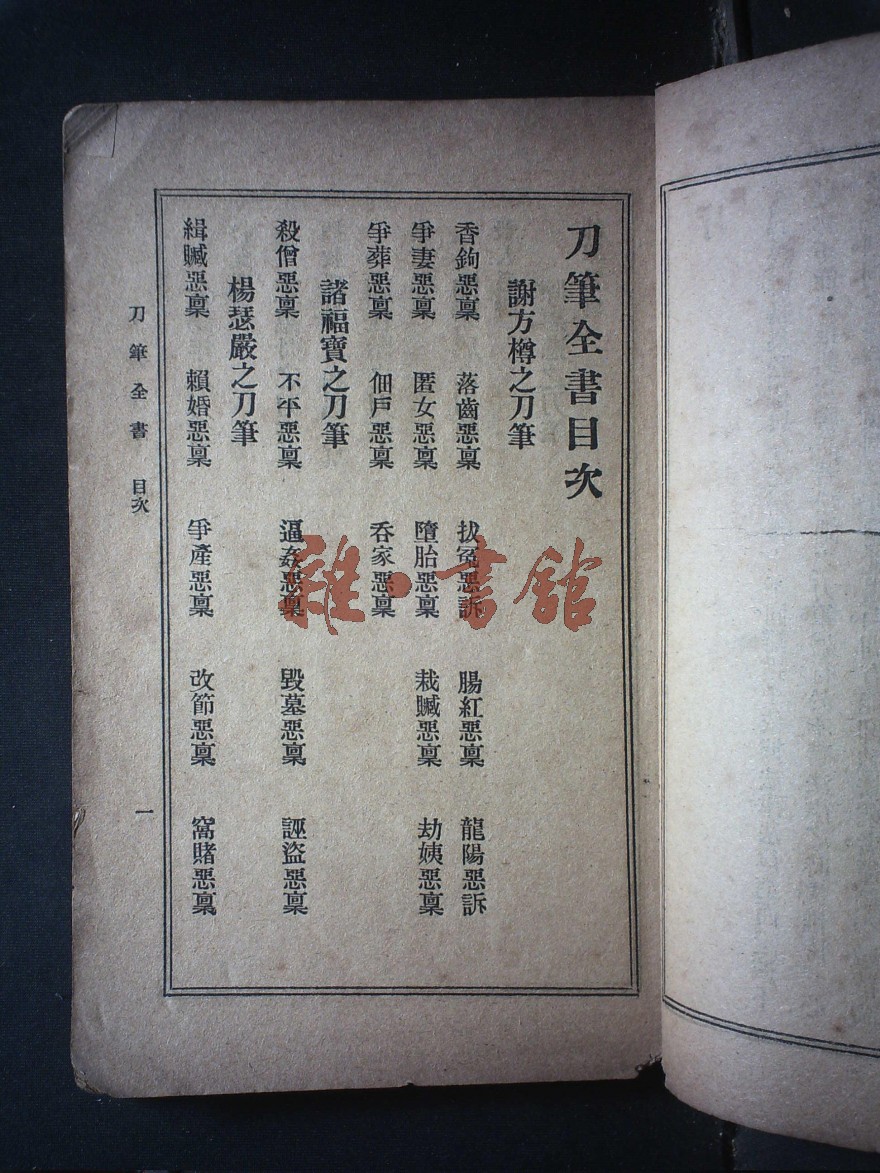 刀筆全書目次
謝方樽之刀筆
香鉤惡稟 落齒惡稟 拔冤惡訴 腸紅惡稟 龍陽惡訴
爭妻惡稟 匿女惡稟 墮胎惡稟 栽贓惡稟 劫姨惡稟
爭葬惡稟 佃戶惡稟 吞家惡稟
諸福寶之刀筆
殺僧惡稟 不平惡稟 逼姦惡稟 毀墓惡稟 誣盜惡稟
楊瑟嚴之刀筆
緝贓惡稟 賴婚惡稟 爭產惡稟 改節惡稟 窩賭惡稟
刀筆全書 目次 一
雜·書館